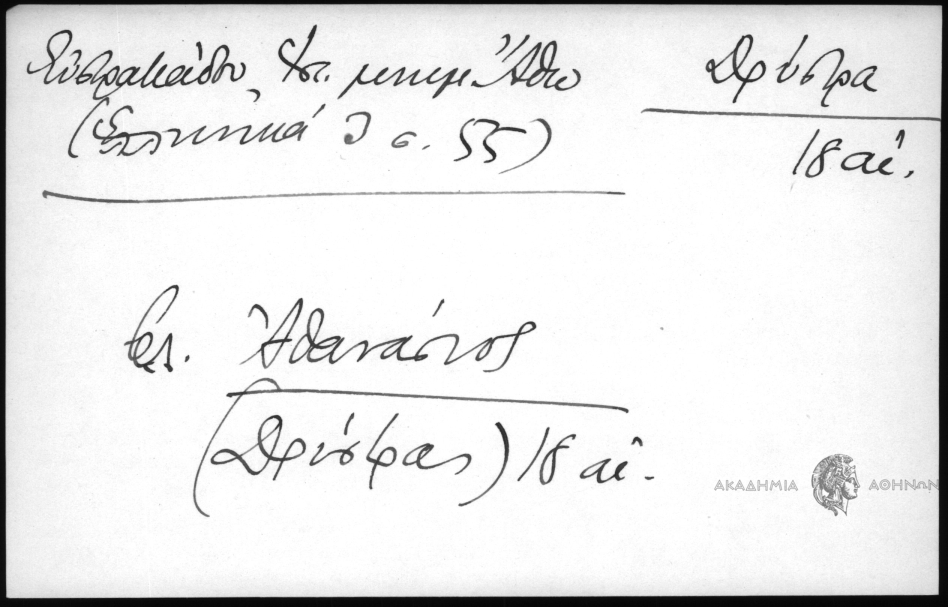 Εὐστρατιάδου, Ἱστ. μνημ. Ἄθω
(Ἑλληνικά 3 σ. 55)
Δρύστρα
18 αἰ.
ἐπ. Ἀθανάσιος
(Δρύστρας) 18 αἰ.
ΑΚΑΔΗΜΙΑ ΑΘΗΝΩΝ